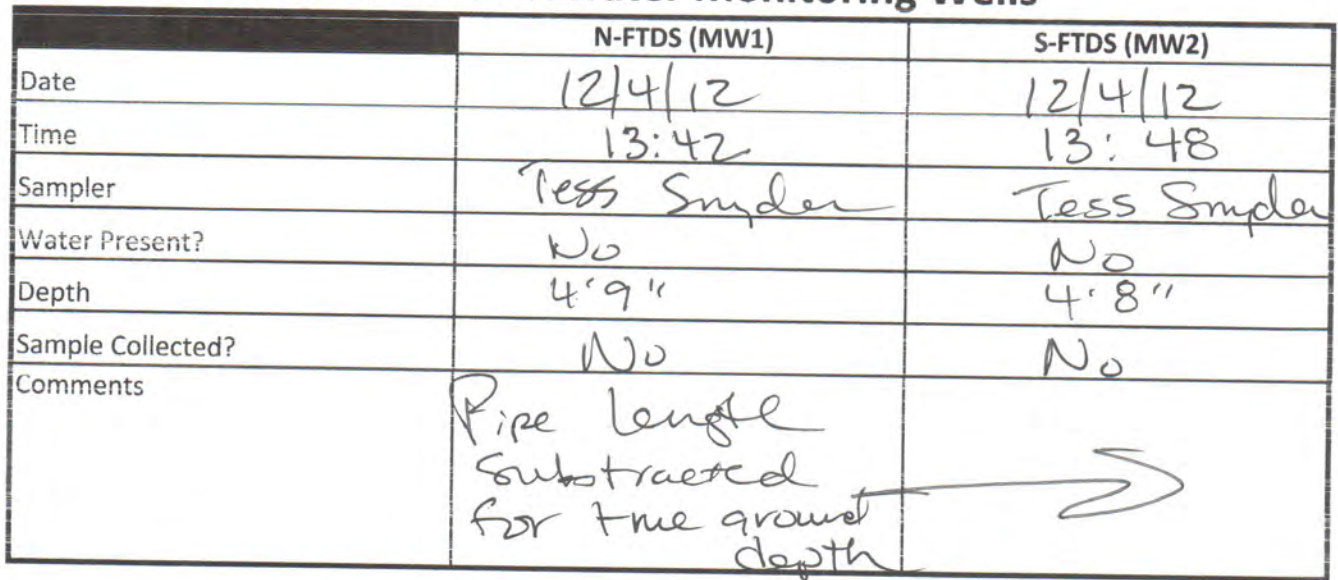 Monitoring Wells
N-FTDS (MW1) S-FTDS (MW2)
Date 12/4/12 12/4/12
Time 13:42 13:48
Sampler Tess Snyder Tess Snyder
Water Present? No No
Depth 4'9" 4'8"
Sample Collected? No No
Comments Pipe length
substracted
for true ground
depth